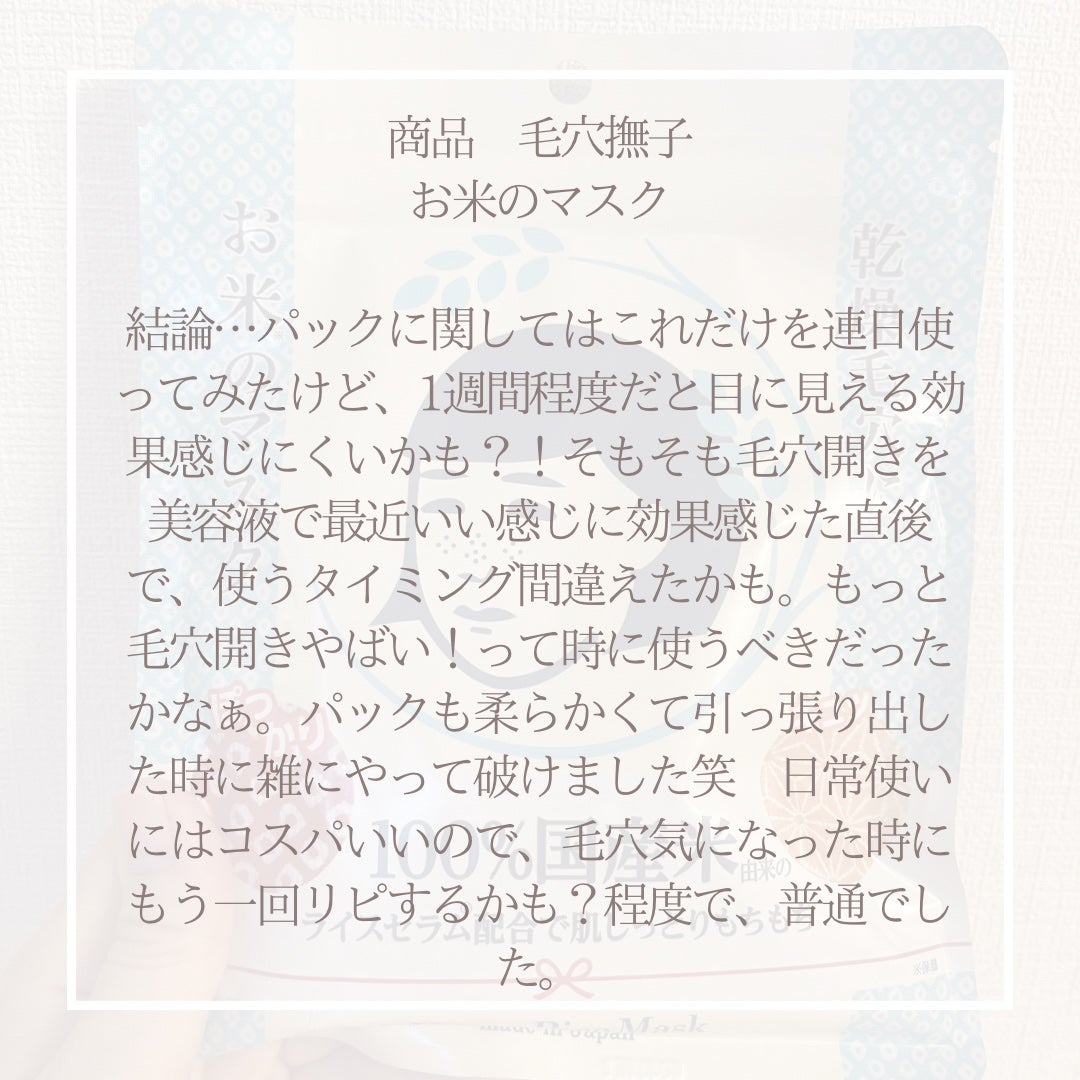 商品　毛穴撫子
お米のマスク
結論…パックに関してはこれだけを連日使
ってみたけど、1週間程度だと目に見える効
果感じにくいかも？！そもそも毛穴開きを
美容液で最近いい感じに効果感じた直後
で、使うタイミング間違えたかも。もっと
毛穴開きやばい！って時に使うべきだった
かなぁ。パックも柔らかくて引っ張り出し
た時に雑にやって破けました笑　日常使い
にはコスパいいので、毛穴気になった時に
もう一回リピするかも？程度で、普通でし
た。
お米のマスク
100%国産米由来の
ライスセラム配合で肌しっとりもちもち